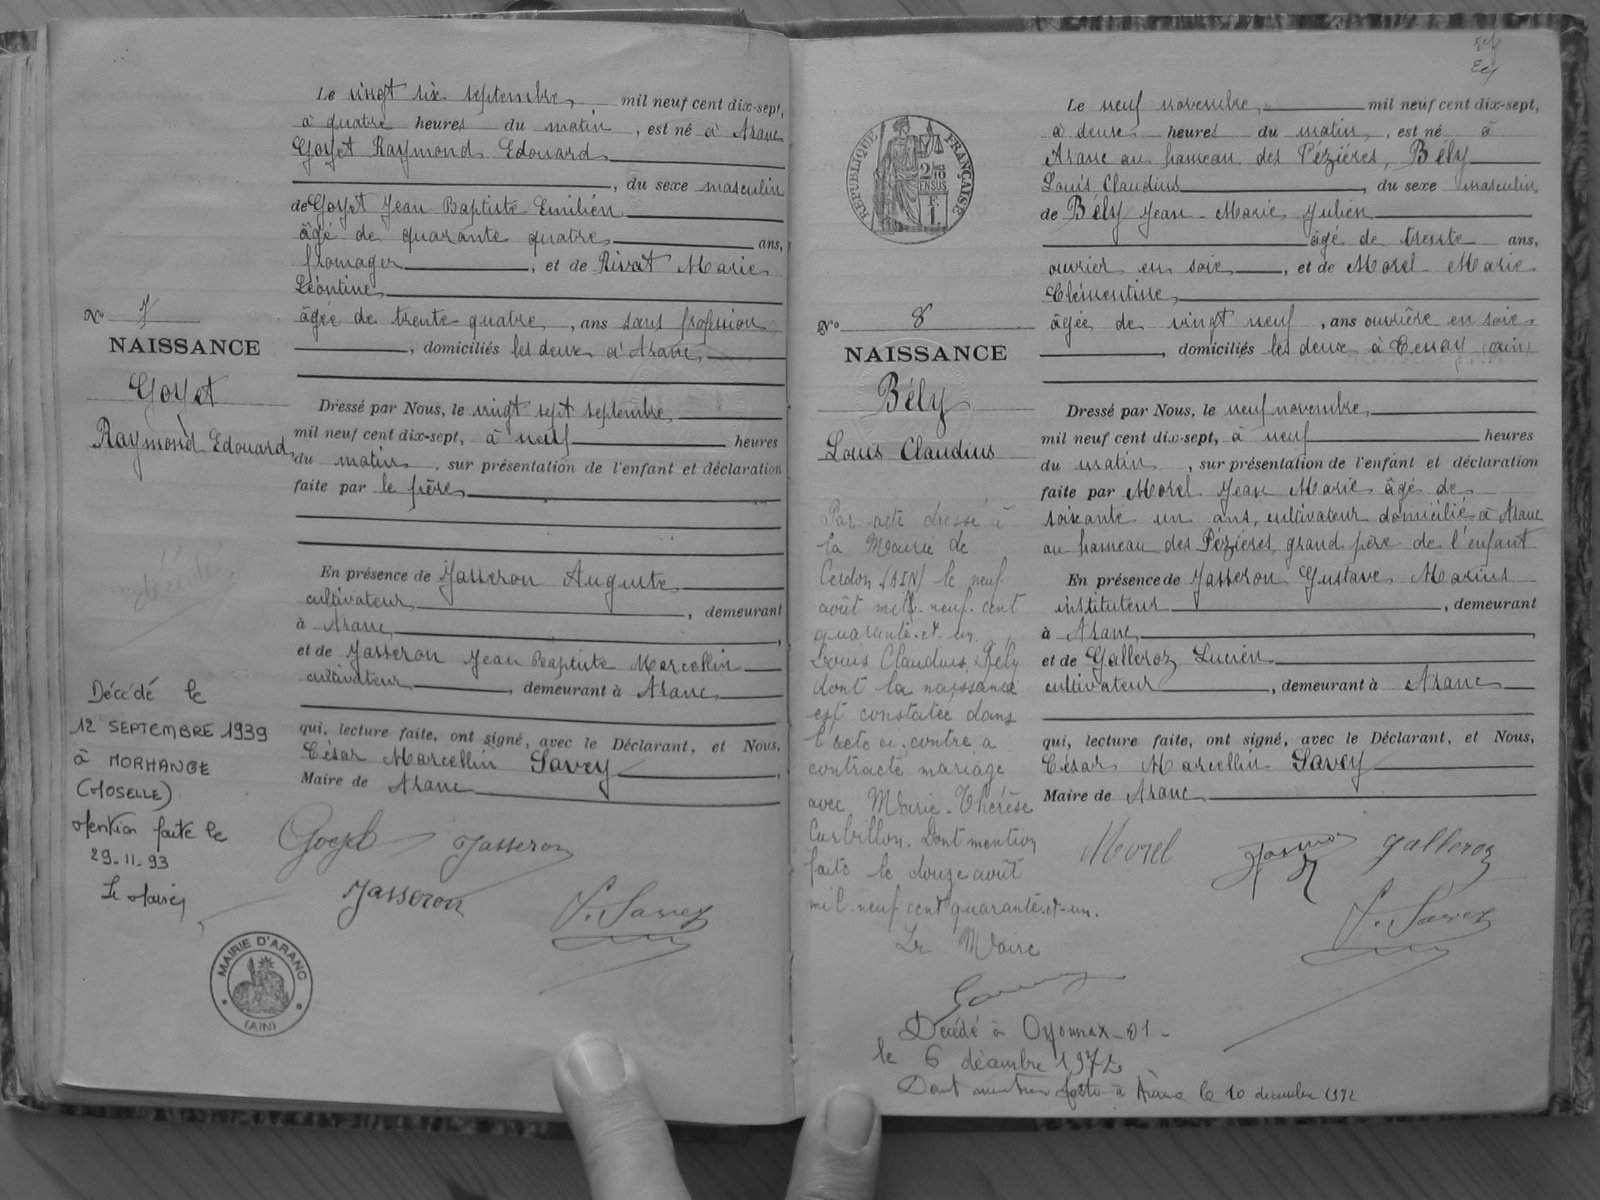 Le vingt six septembre, mil neuf cent dix-sept,
à quatre heures du matin, est né à Aranc
Goyet Raymond Edouard
, du sexe masculin
de Goyet Jean Baptiste Emilien
âgé de quarante quatre ans,
fromager, et de Rivat Marie
Léontine
âgée de trente quatre, ans sans profession
, domiciliés les deux à Aranc,
Dressé par Nous, le vingt sept septembre,
mil neuf cent dix-sept, à neuf heures
du matin, sur présentation de l'enfant et déclaration
faite par le père,
En présence de Jasseron Auguste
cultivateur, demeurant
à Aranc,
et de Jasseron Jean Baptiste Marcellin
cultivateur, demeurant à Aranc,
qui, lecture faite, ont signé, avec le Déclarant, et Nous,
César Marcellin Savey,
Maire de Aranc
Goyet Jasseron
Jasseron
Savey
No 7
NAISSANCE
Goyet
Raymond Edouard
décédé
Décédé le
12 SEPTEMBRE 1939
à MORHANGE
(MOSELLE)
Mention faite le
29.11.93
Le Maire,
MAIRIE D'ARANC
(AIN)
RÉPUBLIQUE FRANÇAISE
2/10
EN SUS
F.
1.
No 8
NAISSANCE
Bély
Louis Claudius
Par acte dressé à
la Mairie de
Cerdon (AIN) le neuf
août mil neuf cent
quarante et un
Louis Claudius Bély
dont la naissance
est constatée dans
l'acte ci-contre a
contracté mariage
avec Marie-Thérèse
Curbillon. Dont mention
faite le douze août
mil neuf cent quarante-et-un.
Le Maire
Décédé à Oyonnax-01-
le 6 décembre 1972
Dont mention faite à Aranc le 10 décembre 1972
Le neuf novembre, mil neuf cent dix-sept,
à deux heures du matin, est né à
Aranc au hameau des Pézières, Bély
Louis Claudius, du sexe masculin
de Bély Jean-Marie Julien
âgé de trente ans,
ouvrier en soie, et de Morel Marie
Clémentine,
âgée de vingt neuf, ans ouvrière en soie
, domiciliés les deux à Tenay (Ain)
Dressé par Nous, le neuf novembre,
mil neuf cent dix-sept, à neuf heures
du matin, sur présentation de l'enfant et déclaration
faite par Morel Jean Marie âgé de
soixante un ans, cultivateur domicilié à Aranc
au hameau des Pézières, grand père de l'enfant
En présence de Jasseron Gustave Marius
instituteur, demeurant
à Aranc,
et de Galleroz Lucien
cultivateur, demeurant à Aranc
qui, lecture faite, ont signé, avec le Déclarant, et Nous,
César Marcellin Savey
Maire de Aranc
Morel Galleroz
Savey